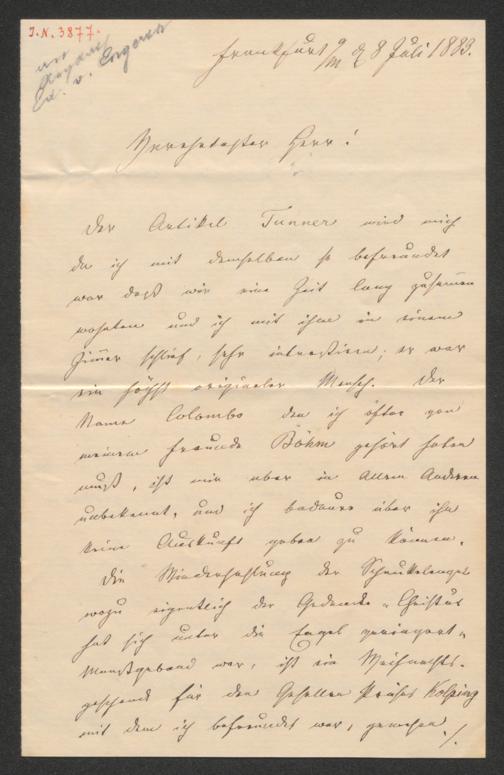 I.N. 3877.
an
Ed. v.
Frankfurt a/M d 8 Juli 1883.
Verehrtester Herr!
Der Artikel Tunner wird mich
da ich mit demselben so befreundet
war daß wir eine Zeit lang zusammen
wohnten und ich mit ihm in einem
Zimmer schlief, sehr intressiren; er war
ein höchst origineller Mensch. Der
Name Colombo den ich öfter von
meinem Freunde Böhm gehört haben
muß, ist mir aber in allem Anderen
unbekannt, und ich bedaure über ihn
keine Auskunft geben zu können.
Die Wiederholung der Schaukelengel
wozu eigentlich der Gedanke „Christus
hat sich unter die Engel
Maaßgebend war, ist ein Weihnachts-
geschenk für den Gesellen Präses Kolping
mit dem ich befreundet war, gewesen ./.